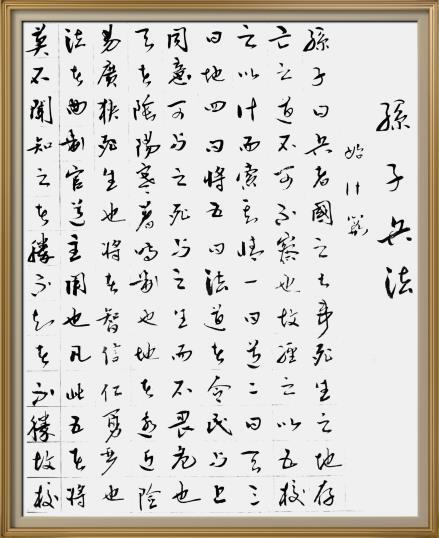 孫子兵法
始計篇
孫子曰兵者國之大事死生之地存
亡之道不可不察也故經之以五校
之以計而索其情一曰道二曰天三
曰地四曰將五曰法道者令民与上
同意可与之死与之生而不畏危也
天者陰陽寒暑時制也地者遠近险
易廣狹死生也將者智信仁勇嚴也
法者曲制官道主用也凡此五者將
莫不聞知之者勝不知者不勝故校